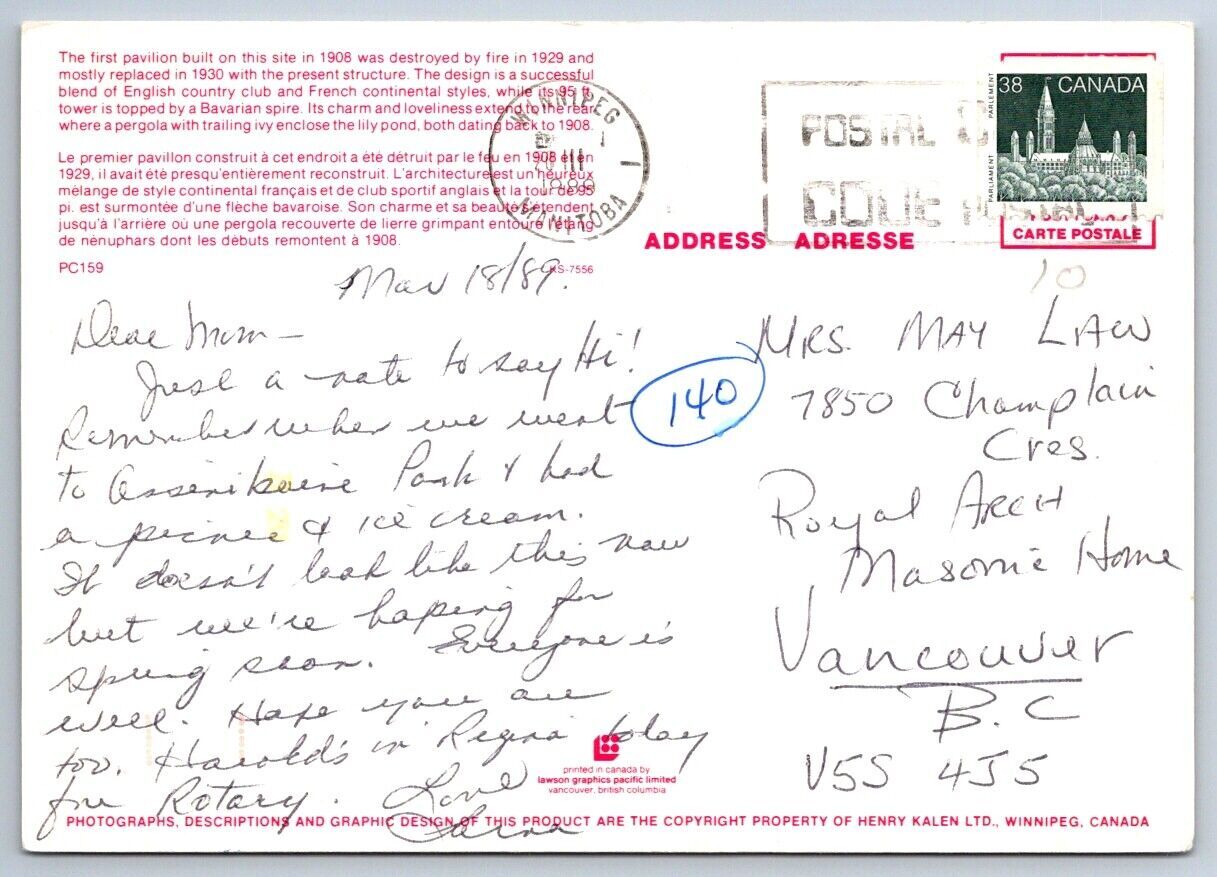 The first pavilion built on this site in 1908 was destroyed by fire in 1929 and
mostly replaced in 1930 with the present structure. The design is a successful
blend of English country club and French continental styles, while its 95 ft.
tower is topped by a Bavarian spire. Its charm and loveliness extend to the rear
where a pergola with trailing ivy enclose the lily pond, both dating back to 1908.
Le premier pavillon construit à cet endroit a été détruit par le feu en 1908 et en
1929, il avait été presqu'entièrement reconstruit. L'architecture est un heureux
mélange de style continental français et de club sportif anglais et la tour de 95
pi. est surmontée d'une flèche bavaroise. Son charme et sa beauté s'étendent
jusqu'à l'arrière où une pergola recouverte de lierre grimpant entoure l'étang
de nénuphars dont les débuts remontent à 1908.
PC159
KS-7556
WINNIPEG
20 III
1989
MANITOBA
POSTAL
CODE
38 CANADA
PARLEMENT
PARLIAMENT
CARTE POSTALE
ADDRESS ADRESSE
10
Mar 18/89.
Dear Mom –
Just a note to say Hi!
Remember when we went
to Assiniboine Park & had
a picnic & ice cream.
It doesn't look like this now
but we're hoping for
spring soon. Everyone is
well. Hope you are
too. Harold's in Regina today
for Rotary. Love
140
MRS. MAY LAW
7850 Champlain
Cres.
Royal ARCH
Masonic Home
Vancouver
B.C
V5S 4J5
printed in canada by
lawson graphics pacific limited
vancouver, british columbia
PHOTOGRAPHS, DESCRIPTIONS AND GRAPHIC DESIGN OF THIS PRODUCT ARE THE COPYRIGHT PROPERTY OF HENRY KALEN LTD., WINNIPEG, CANADA